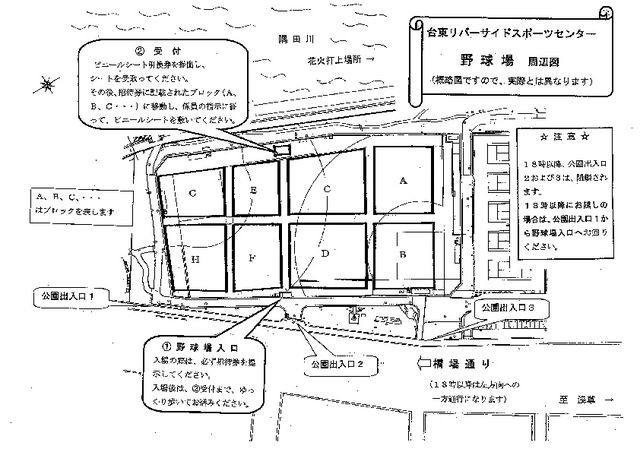 台東リバーサイドスポーツセンター
野球場 周辺図
(概略図ですので、実際とは異なります)
隅田川
花火打上場所 →
② 受付
ビニールシート引換券を提出し、
シートを受取ってください。
その後、招待券に記載されたブロック(A、
B、C・・・)に移動し、係員の指示に従
って、ビニールシートを敷いてください。
☆ 注意 ☆
18時以降、公園出入口
2および3は、閉鎖され
ます。
18時以降にお越しの
場合は、公園出入口1か
ら野球場入口へお回り
ください。
A、B、C、・・・
はブロックを表します
G
E
C
A
H
F
D
B
公園出入口1
公園出入口3
公園出入口2
① 野球場入口
入場の際は、必ず招待券を提
示してください。
入場後は、②受付まで、ゆっ
くり歩いてお進みください。
橋場通り
(18時以降は左方向への
一方通行になります)
至 浅草 →